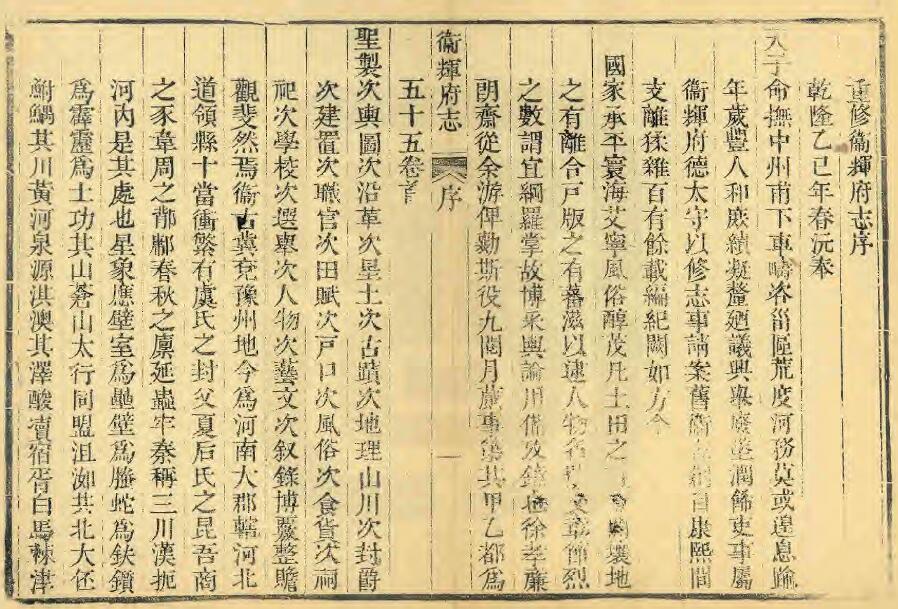 重修衞輝府志序
乾隆乙巳年春沅奉
天子命撫中州甫下車疇咨甾區荒度河務莫或遑息踰
年歲豐人和庶績凝釐廼議興舉廢墜潤餙吏事屬
衞輝府德太守以修志事請案舊衞志創自康熙間
支離猱雜百有餘載編紀闕如方今
國家承平寰海艾寧風俗醇茂凡土田之壤地
之有離合戸版之有蕃滋以逮人物名文章彈烈
之數謂宜綱羅掌故博采輿論用備攷鏡徐孝廉
朗齋從余游俾勷斯役九閱月蕆事彙其甲乙都爲
衞輝府志 序 一
五十五卷首
聖製次輿圖次沿革次星土次古蹟次地理山川次封爵
次建置次職官次田賦次戸口次風俗次食貨次祠
祀次學校次選舉次人物次藝文次叙錄博覈整贍
觀斐然焉衞古冀兗豫州地今爲河南大郡轄河北
道領縣十當衝繁有虞氏之封父夏后氏之昆吾商
之豕韋周之鄁鄘春秋之廩延蟲牢秦稱三川漢扼
河內是其處也星象應壁室爲壘壁爲螣蛇爲鈇鑕
爲霹靂爲土功其山蒼山太行同盟沮洳共北大伾
鮒鰅其川黃河泉源淇澳其澤酸棗宿胥白馬棘津